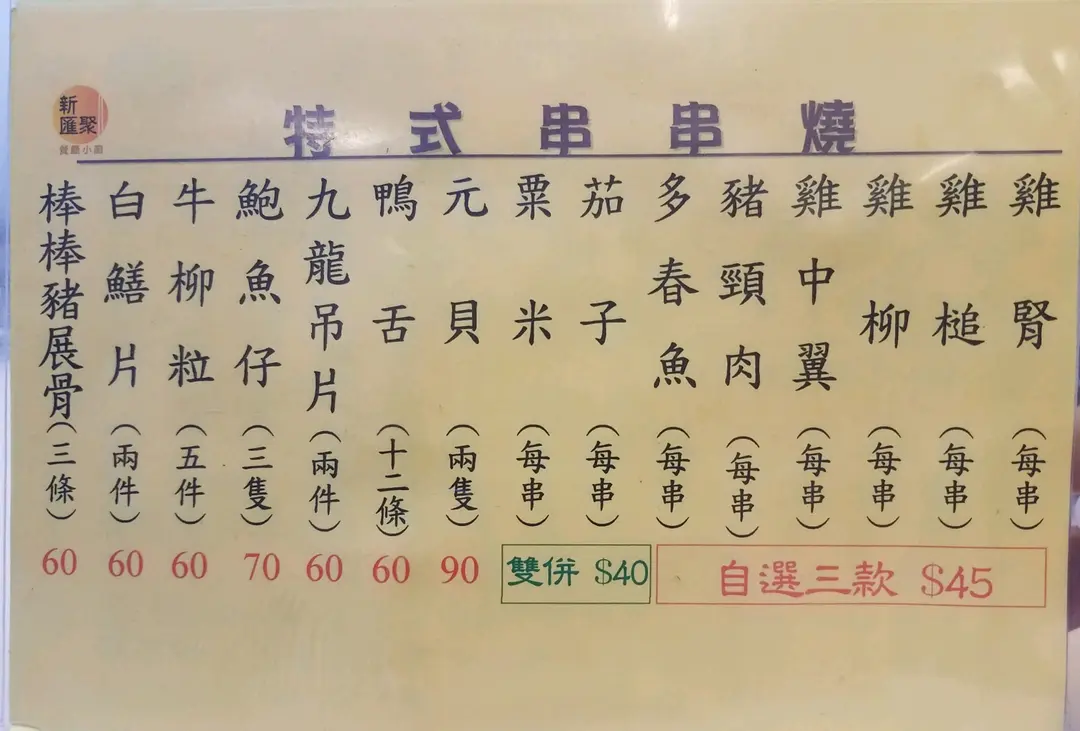 新
匯聚
餐廳小廚
特式串串燒
雞腎(每串)
雞槌(每串)
雞柳(每串)
雞中翼(每串)
豬頸肉(每串)
多春魚(每串)
自選三款 $45
茄子(每串)
粟米(每串)
雙併 $40
元貝(兩隻)
90
鴨舌(十二條)
60
九龍吊片(兩件)
60
鮑魚仔(三隻)
70
牛柳粒(五件)
60
白鱔片(兩件)
60
棒棒豬展骨(三條)
60